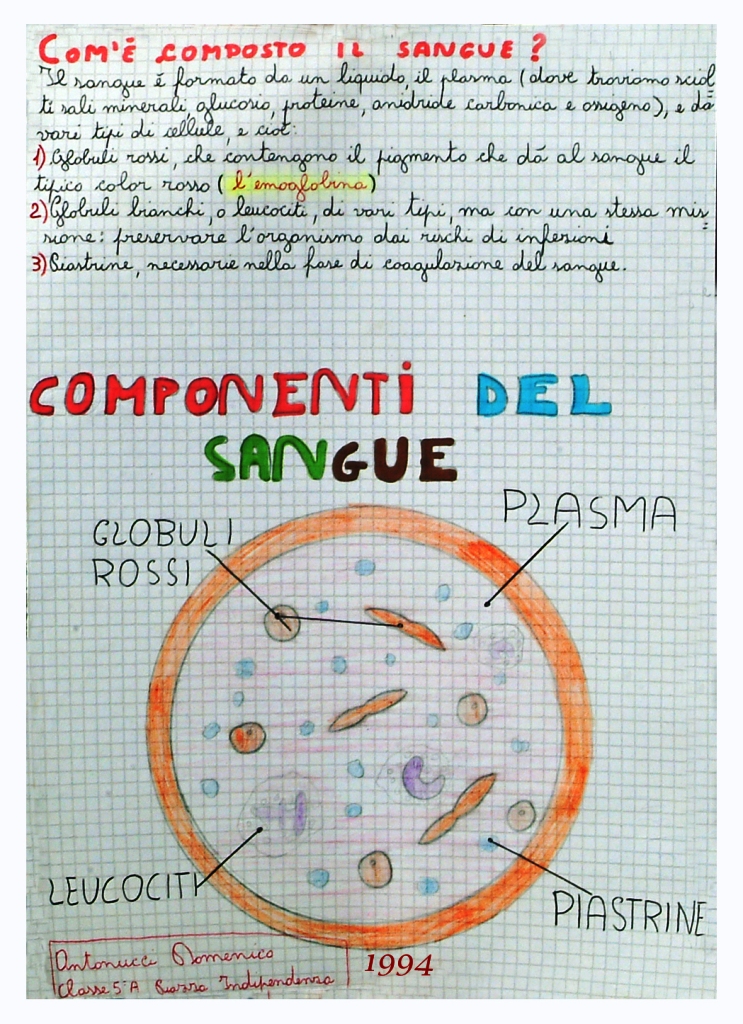 COM'È COMPOSTO IL SANGUE?
Il sangue é formato da un liquido, il plasma (dove troviamo sciol=
ti sali minerali, glucosio, proteine, anidride carbonica e ossigeno), e da
vari tipi di cellule, e cioé:
1) Globuli rossi, che contengono il pigmento che dá al sangue il
tipico color rosso (l'emoglobina)
2) Globuli bianchi, o leucociti, di vari tipi, ma con una stessa mis=
sione: preservare l'organismo dai rischi di infezioni
3) Piastrine, necessarie nella fase di coagulazione del sangue.
COMPONENTI DEL
SANGUE
GLOBULI
ROSSI
PLASMA
LEUCOCITI
PIASTRINE
Antonucci Domenico
Classe 5ªA Piazza Indipendenza
1994